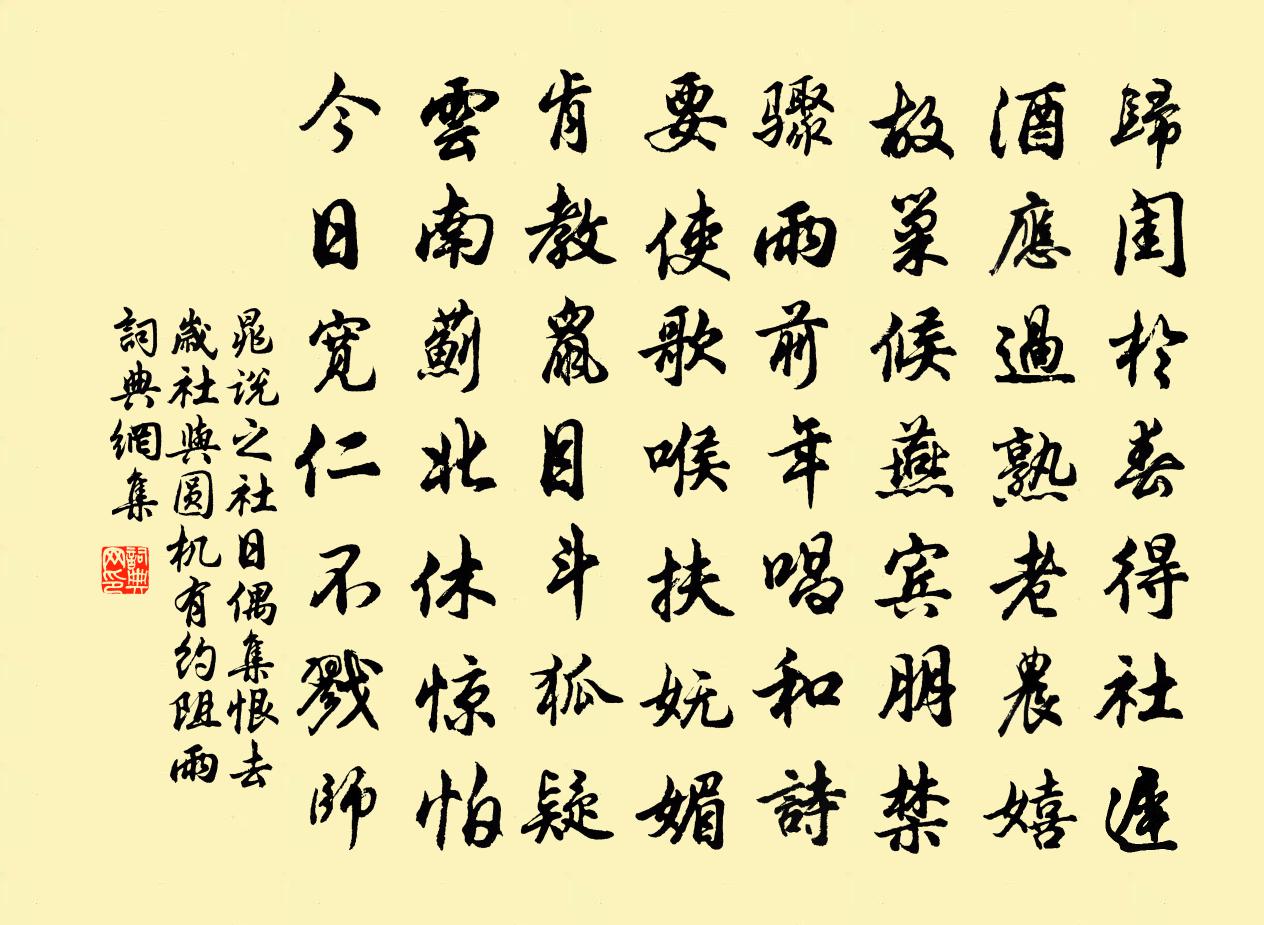 歸閏於春得社遲
酒應過熟老農嬉
故巢候燕宾朋禁
骤雨前年唱和詩
要使歌喉扶妩媚
肯教鼠目斗狐疑
雲南薊北休惊怕
今日宽仁不戮師
晁说之社日偶集恨去
歲社與圆机有约阻雨
詞典網集
詞典网印